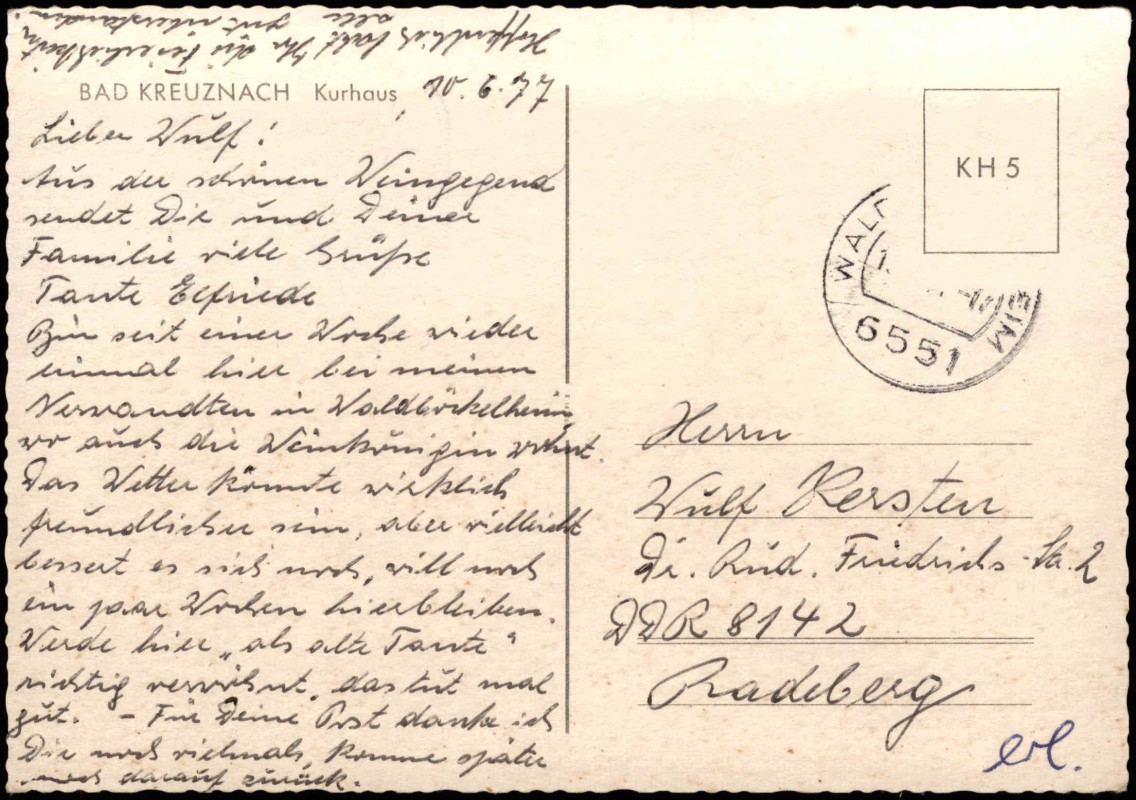 BAD KREUZNACH Kurhaus, 10.6.77
Lieber Wulf!
Aus der schönen Weingegend
sendet Dir und Deiner
Familie viele Grüße
Tante Elfriede
Bin seit einer Woche wieder
einmal hier bei meinen
Verwandten in Waldböckelheim
wo auch die Weinkönigin wohnt.
Das Wetter könnte wirklich
freundlicher sein, aber vielleicht
bessert es sich noch, will noch
ein paar Wochen hierbleiben.
Werde hier „als alte Tante"
richtig verwöhnt, das tut mal
gut. – Für Deine Post danke ich
Dir noch vielmals, komme später
noch darauf zurück.
Hoffentlich habt Ihr die Feierlichkeit
alle gut überstanden.
KH 5
WALD EIM
6551
Herrn
Wulf Kersten
Dr. Rud. Friedrichs-Str. 2
DDR 8142
Radeberg
erl.